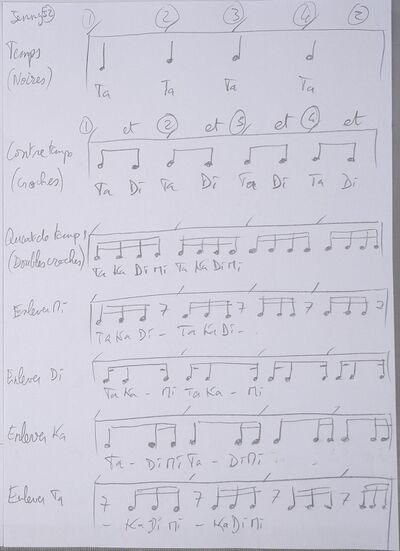 Jenny 52
1 2 3 4
Temps
(Noires)
Ta Ta Ta Ta
1 et 2 et 3 et 4 et
Contretemps
(Croches)
Ta Di Ta Di Ta Di Ta Di
Quart de temps
(Doubles croches)
Ta Ka Di Mi Ta Ka Di Mi
Enlever Mi
Ta Ka Di - Ta Ka Di -
Enlever Di
Ta Ka - Mi Ta Ka - Mi
Enlever Ka
Ta - Di Mi Ta - Di Mi
Enlever Ta
- Ka Di Mi - Ka Di Mi